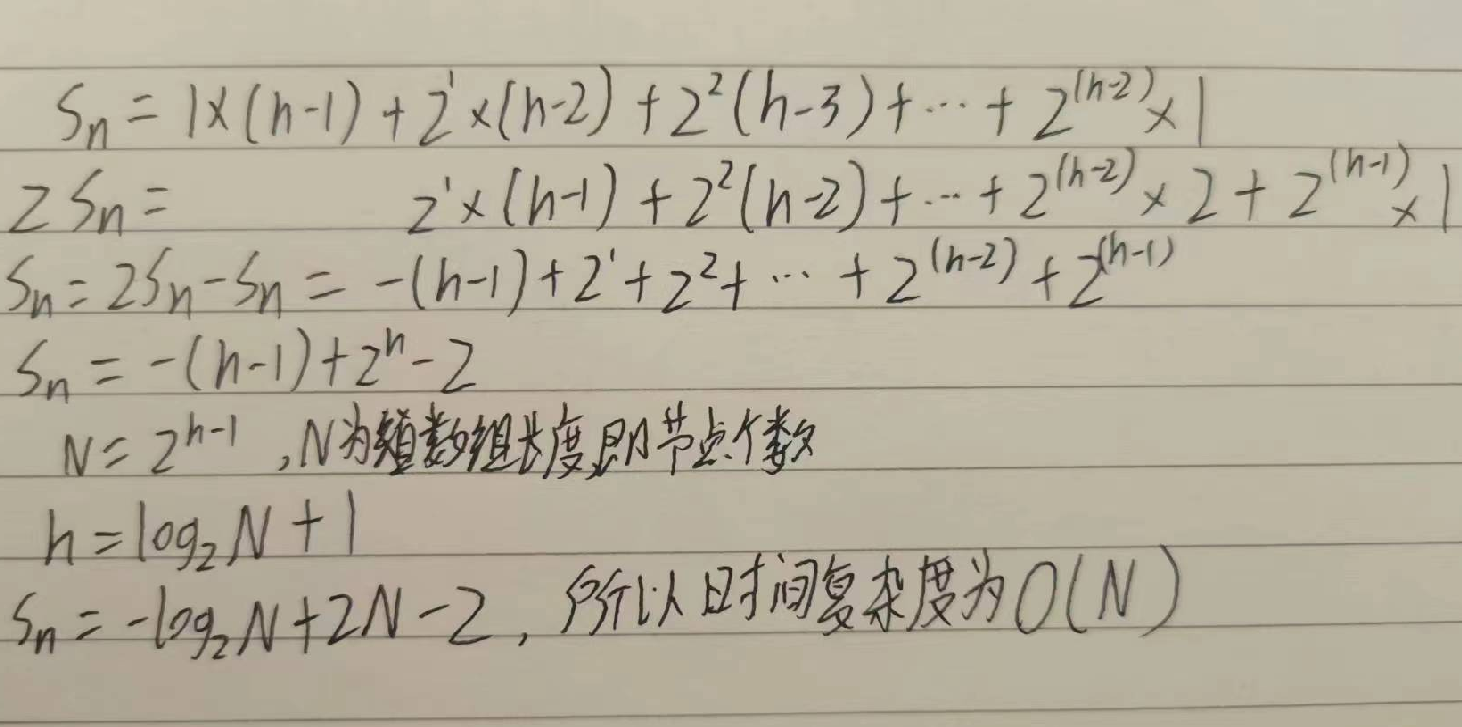 Sn = 1×(h-1) + 2¹×(h-2) + 2²(h-3) + ··· + 2^(h-2) × 1
2Sn = 2¹×(h-1) + 2²(h-2) + ··· + 2^(h-2) × 2 + 2^(h-1) × 1
Sn = 2Sn - Sn = -(h-1) + 2¹ + 2² + ··· + 2^(h-2) + 2^(h-1)
Sn = -(h-1) + 2^h - 2
N = 2^(h-1) , N为数组长度,即节点个数
h = log₂N + 1
Sn = -log₂N + 2N - 2, 所以时间复杂度为O(N)